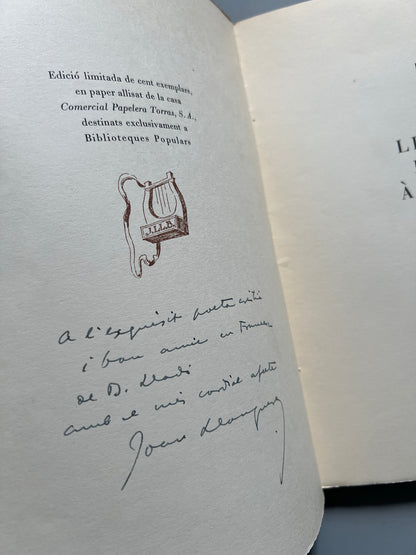 Edició limitada de cent exemplars,
en paper allisat de la casa
Comercial Papelera Torras, S. A.,
destinats exclusivament a
Biblioteques Populars
J.LL.B.
A l'exquisit poeta
i bon amic en
de B. Lladó
amb el més cordial afecte
Joan Llongueres
L
À